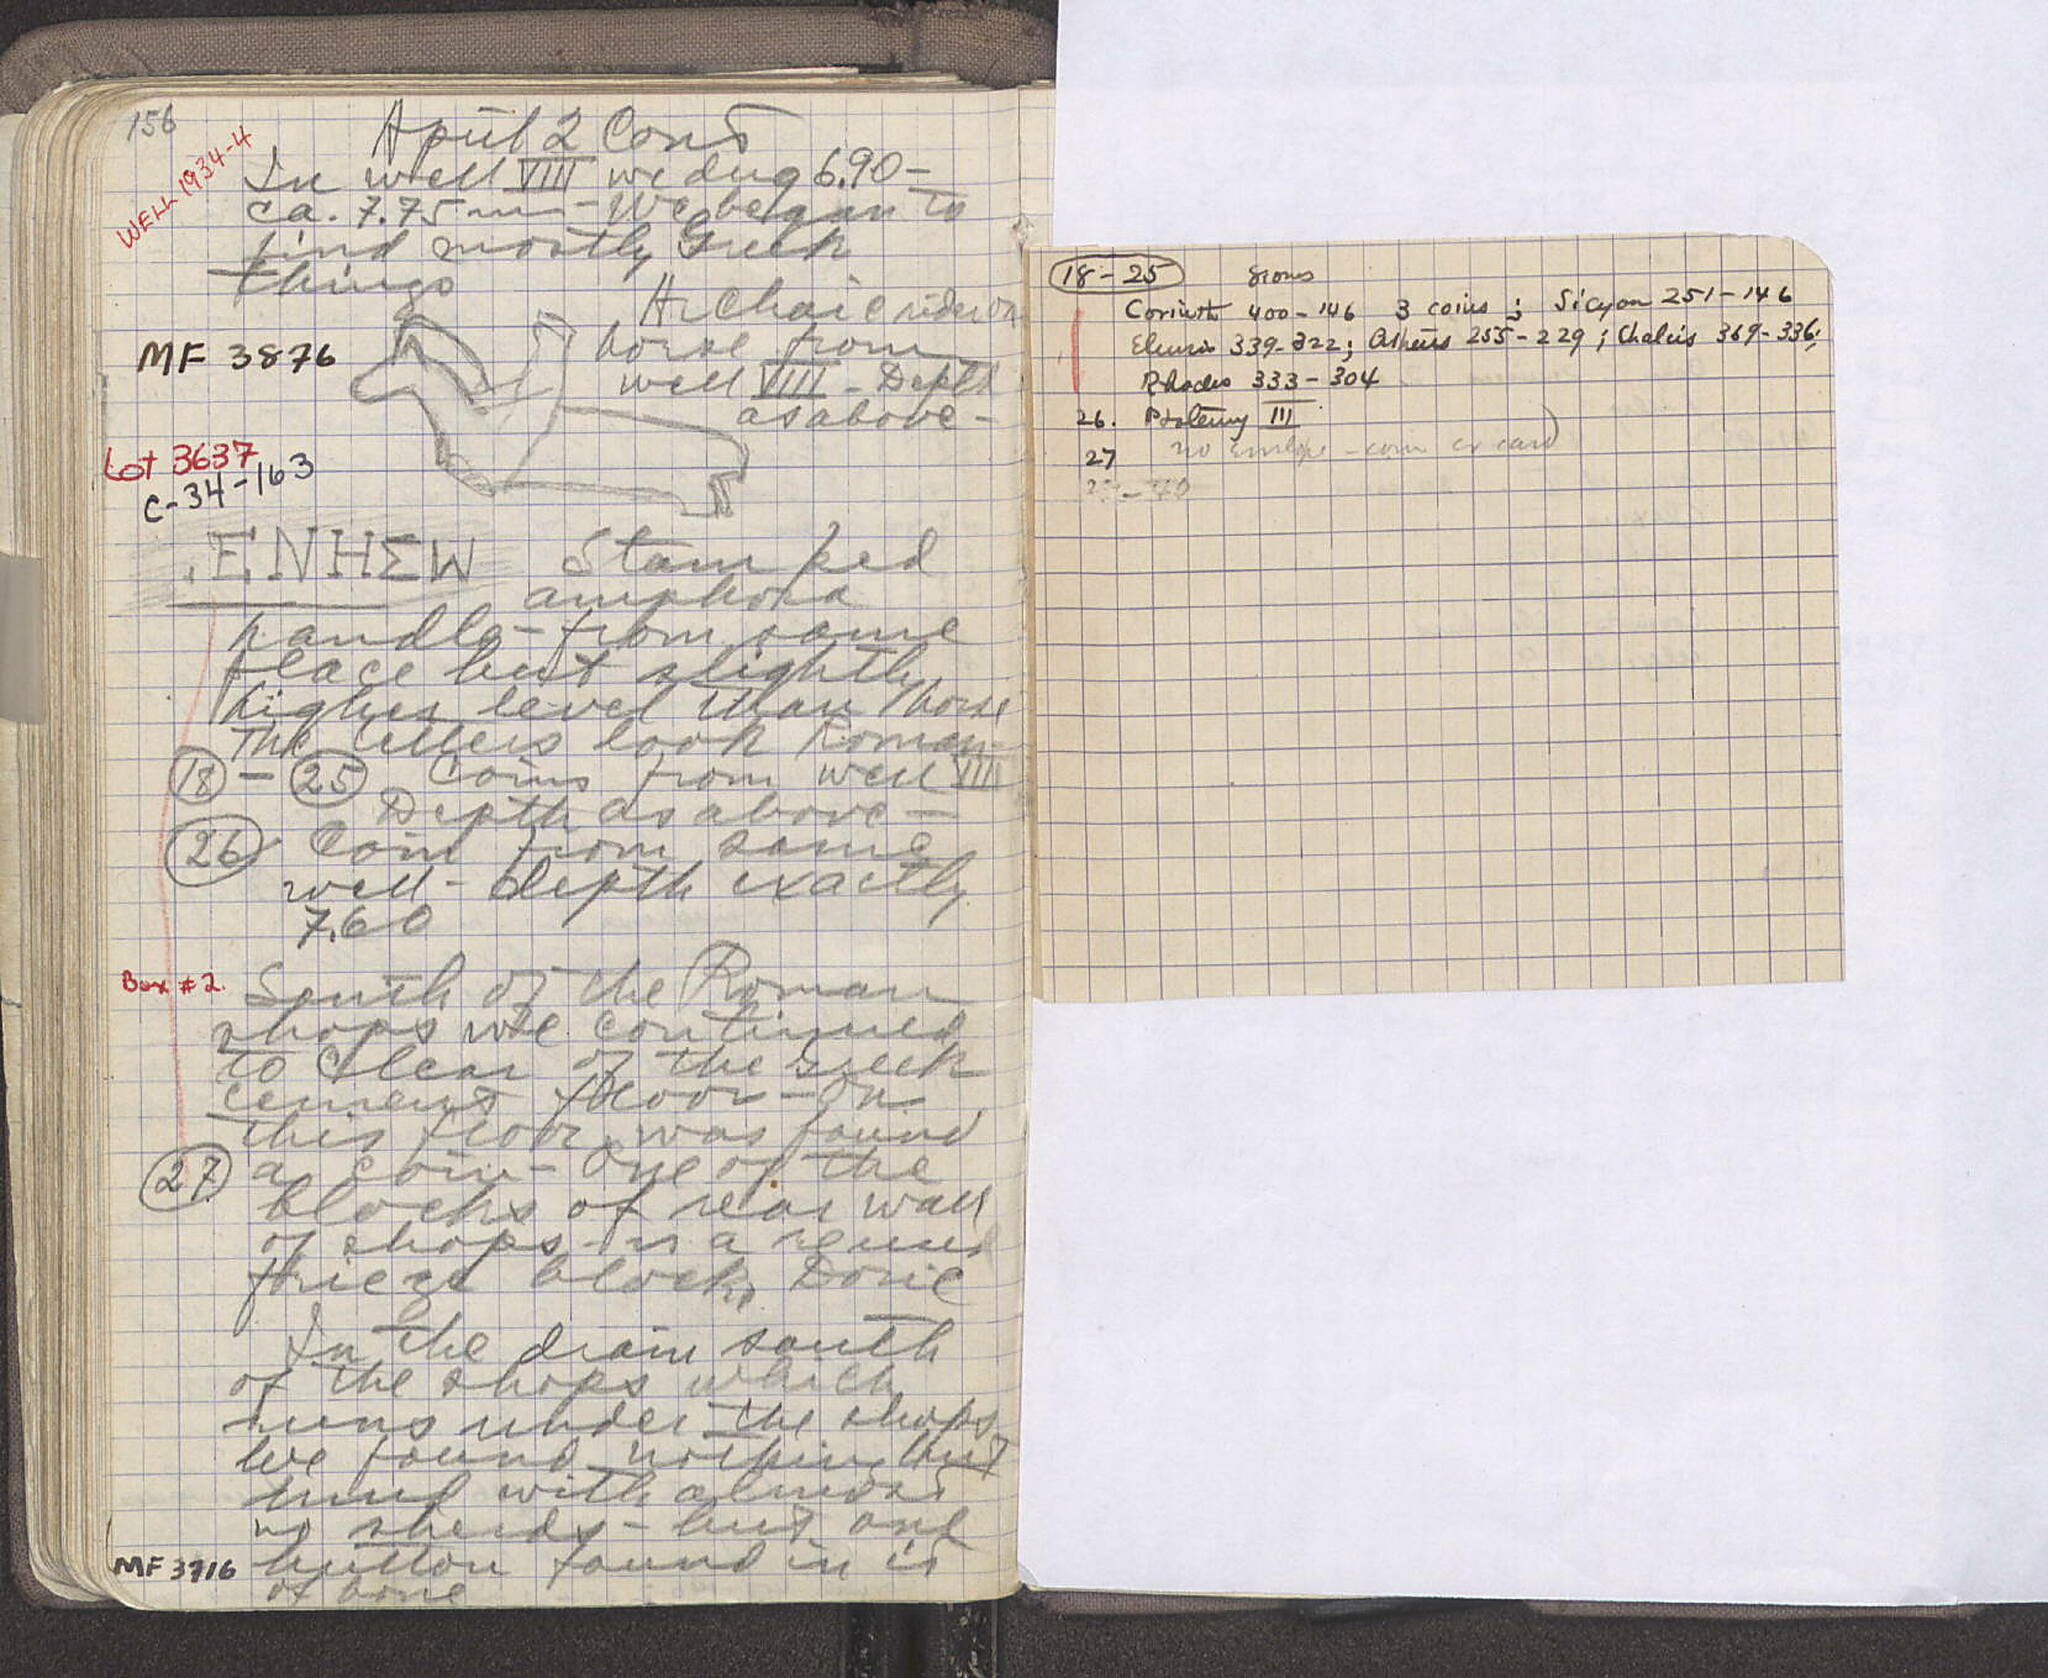 156
April 2 Cont
WELL 1934-4
In well VIII we dug 6.90 –
ca. 7.75 m – We began to
find mostly Greek
things
Archaic rider on
horse from
well VIII – Depth
as above –
MF 3876
Lot 3637
C-34-163
.ENHΣW Stamped
amphora
handle – from same
place but slightly
higher level than horse
The letters look Roman
18 – 25 Coins from well VIII
Depth as above –
26 Coin from same
well – depth exactly
7.60
Box #2. South of the Roman
shops we continued
to clear of the Greek
cement floor – On
this floor was found
27 a coin – One of the
blocks of rear wall
of shops is a reused
frieze block, Doric
In the drain south
of the shops which
runs under the shops
we found nothing but
mud with almost
no sherds – but one
MF 3716 button found in it
of bone
18 - 25
Corinth 400-146 3 coins ; Sicyon 251-146
Eleusis 339-322; Athens 255-229 ; Chalcis 369-336;
Rhodes 333-304
26. Ptolemy III
27 no envelope – coin or card)